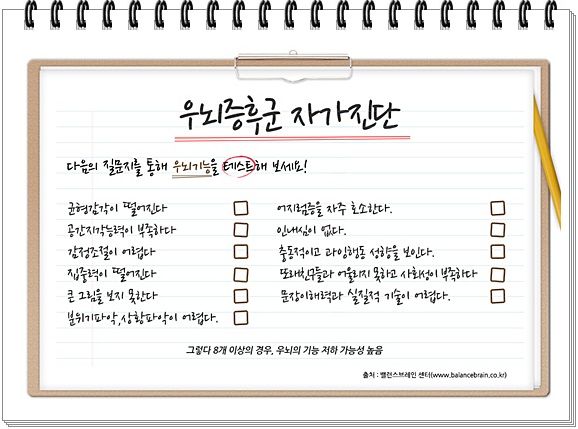 우뇌증후군 자가진단
다음의 질문지를 통해 우뇌기능을 테스트해 보세요!
균형감각이 떨어진다
공간지각능력이 부족하다
감정조절이 어렵다
집중력이 떨어진다
큰 그림을 보지 못한다
분위기파악,상황파악이 어렵다.
어지럼증을 자주 호소한다.
인내심이 없다.
충동적이고 과잉행동 성향을 보인다.
또래친구들과 어울리지 못하고 사회성이 부족하다
문장이해력과 실질적 기술이 어렵다.
그렇다 8개 이상의 경우, 우뇌의 기능 저하 가능성 높음
출처 : 밸런스브레인 센터(www.balancebrain.co.kr)